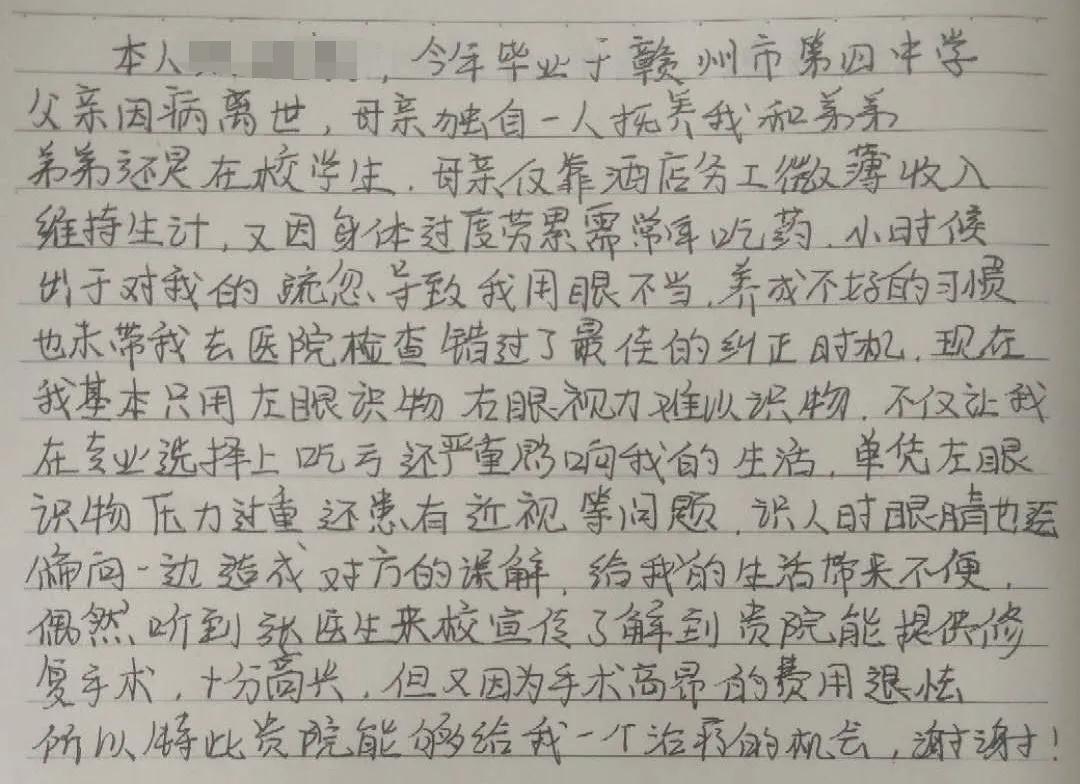 本人 ，今年毕业于赣州市第四中学
父亲因病离世，母亲独自一人抚养我和弟弟
弟弟还是在校学生．母亲仅靠酒店务工微薄收入
维持生计，又因身体过度劳累需常年吃药．小时候
出于对我的疏忽导致我用眼不当．养成不好的习惯
也未带我去医院检查错过了最佳的纠正时机．现在
我基本只用左眼识物右眼视力难以识物．不仅让我
在专业选择上吃亏还严重影响我的生活．单凭左眼
识物压力过重还患有近视等问题．识人时眼睛也会
偏向一边造成对方的误解．给我的生活带来不便．
偶然听到张医生来校宣传了解到贵院能提供修
复手术．十分高兴．但又因为手术高昂的费用退怯
所以特此贵院能够给我一个治疗的机会，谢谢！